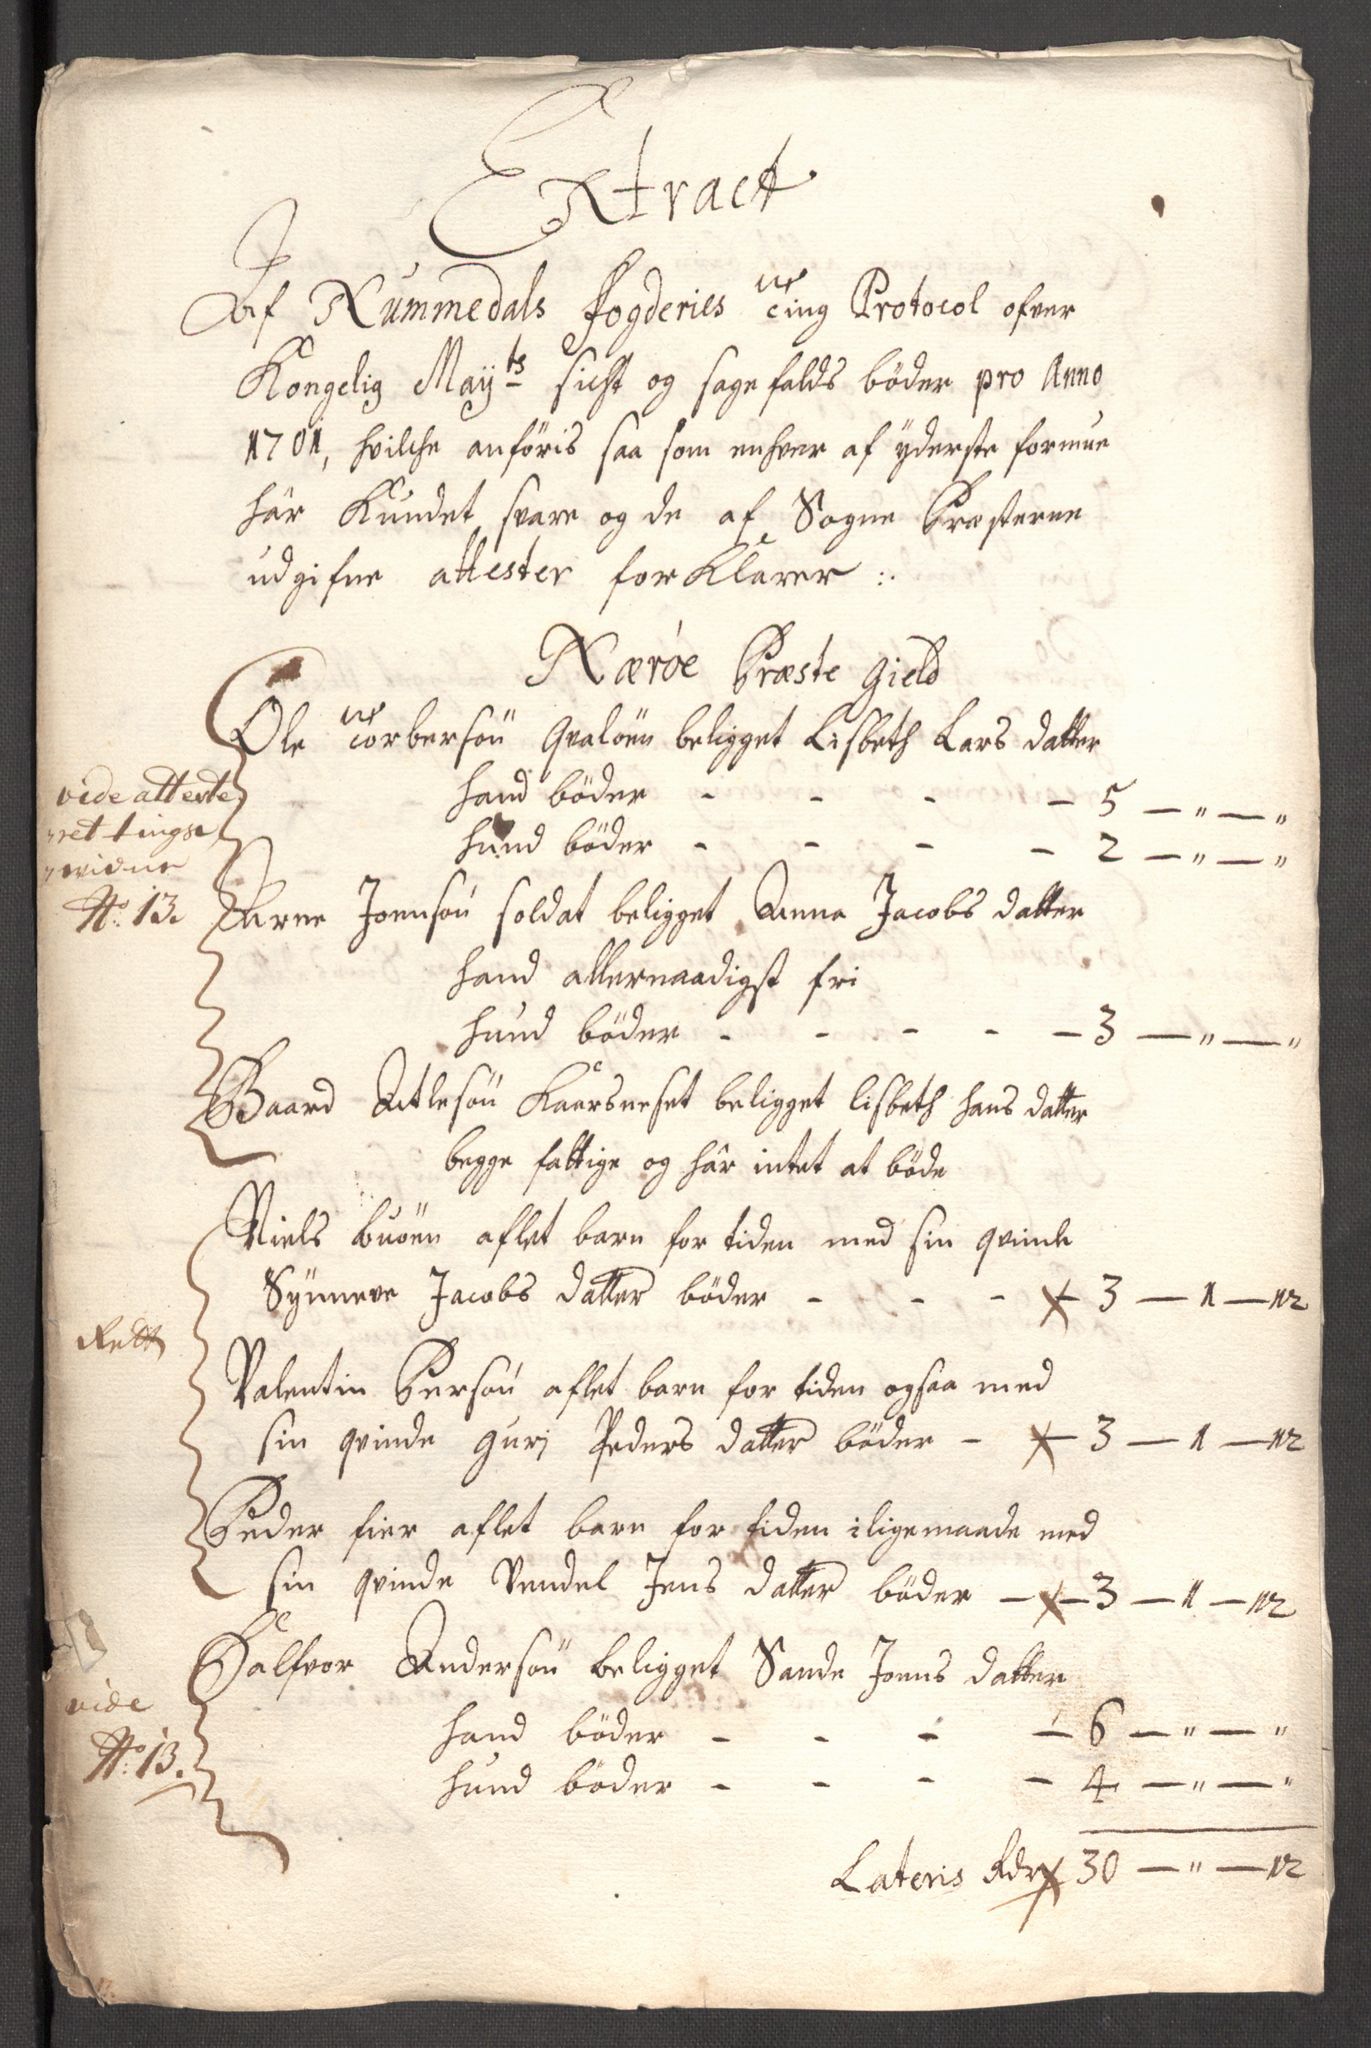 Extract
Af Nummedals fogderies Ting Protocol ofver
Kongelig Maÿts sicht og sagefalds böder pro Anno
1701, hvilche anföris saa som enhver af ÿderste formue
här Kundet svare og de af Sogne Præsterne
udgifne attester forKlarer :.
Nærøe Præste gield
Ole Torbersøn Qvaløen beligget Lisbeth Lars datter
hand böder - - - - 5 — " — "
hund böder - - - - 2 — " — "
vide atteste
ret tings
vidne
No. 13.
Arne Joensøn soldat beligget Anna Jacobs datter
hand allernaadigst fri
hund böder - - - - - 3 — " — "
Baard Atlesøn Kaarsneset beligget lisbeth hans datter
begge fattige og här intet at böde
Niels buöen aflet barn for tiden med sin qvinde
Sÿnneve Jacobs datter böder - - - 3 — 1 — 12
Rett
Valentin Persøn aflet barn for tiden ogsaa med
sin qvinde Guri Peders datter böder - 3 — 1 — 12
Peder fier aflet barn for tiden iligemaade med
sin qvinde Vendel Jens datter böder — 3 — 1 — 12
Halfvor Andersøn beligget Sande Joens datter
hand böder - - - - 6 — " — "
vide
No. 13.
hund böder - - - - 4 — " — "
Lateris Rdr 30 — " — 12